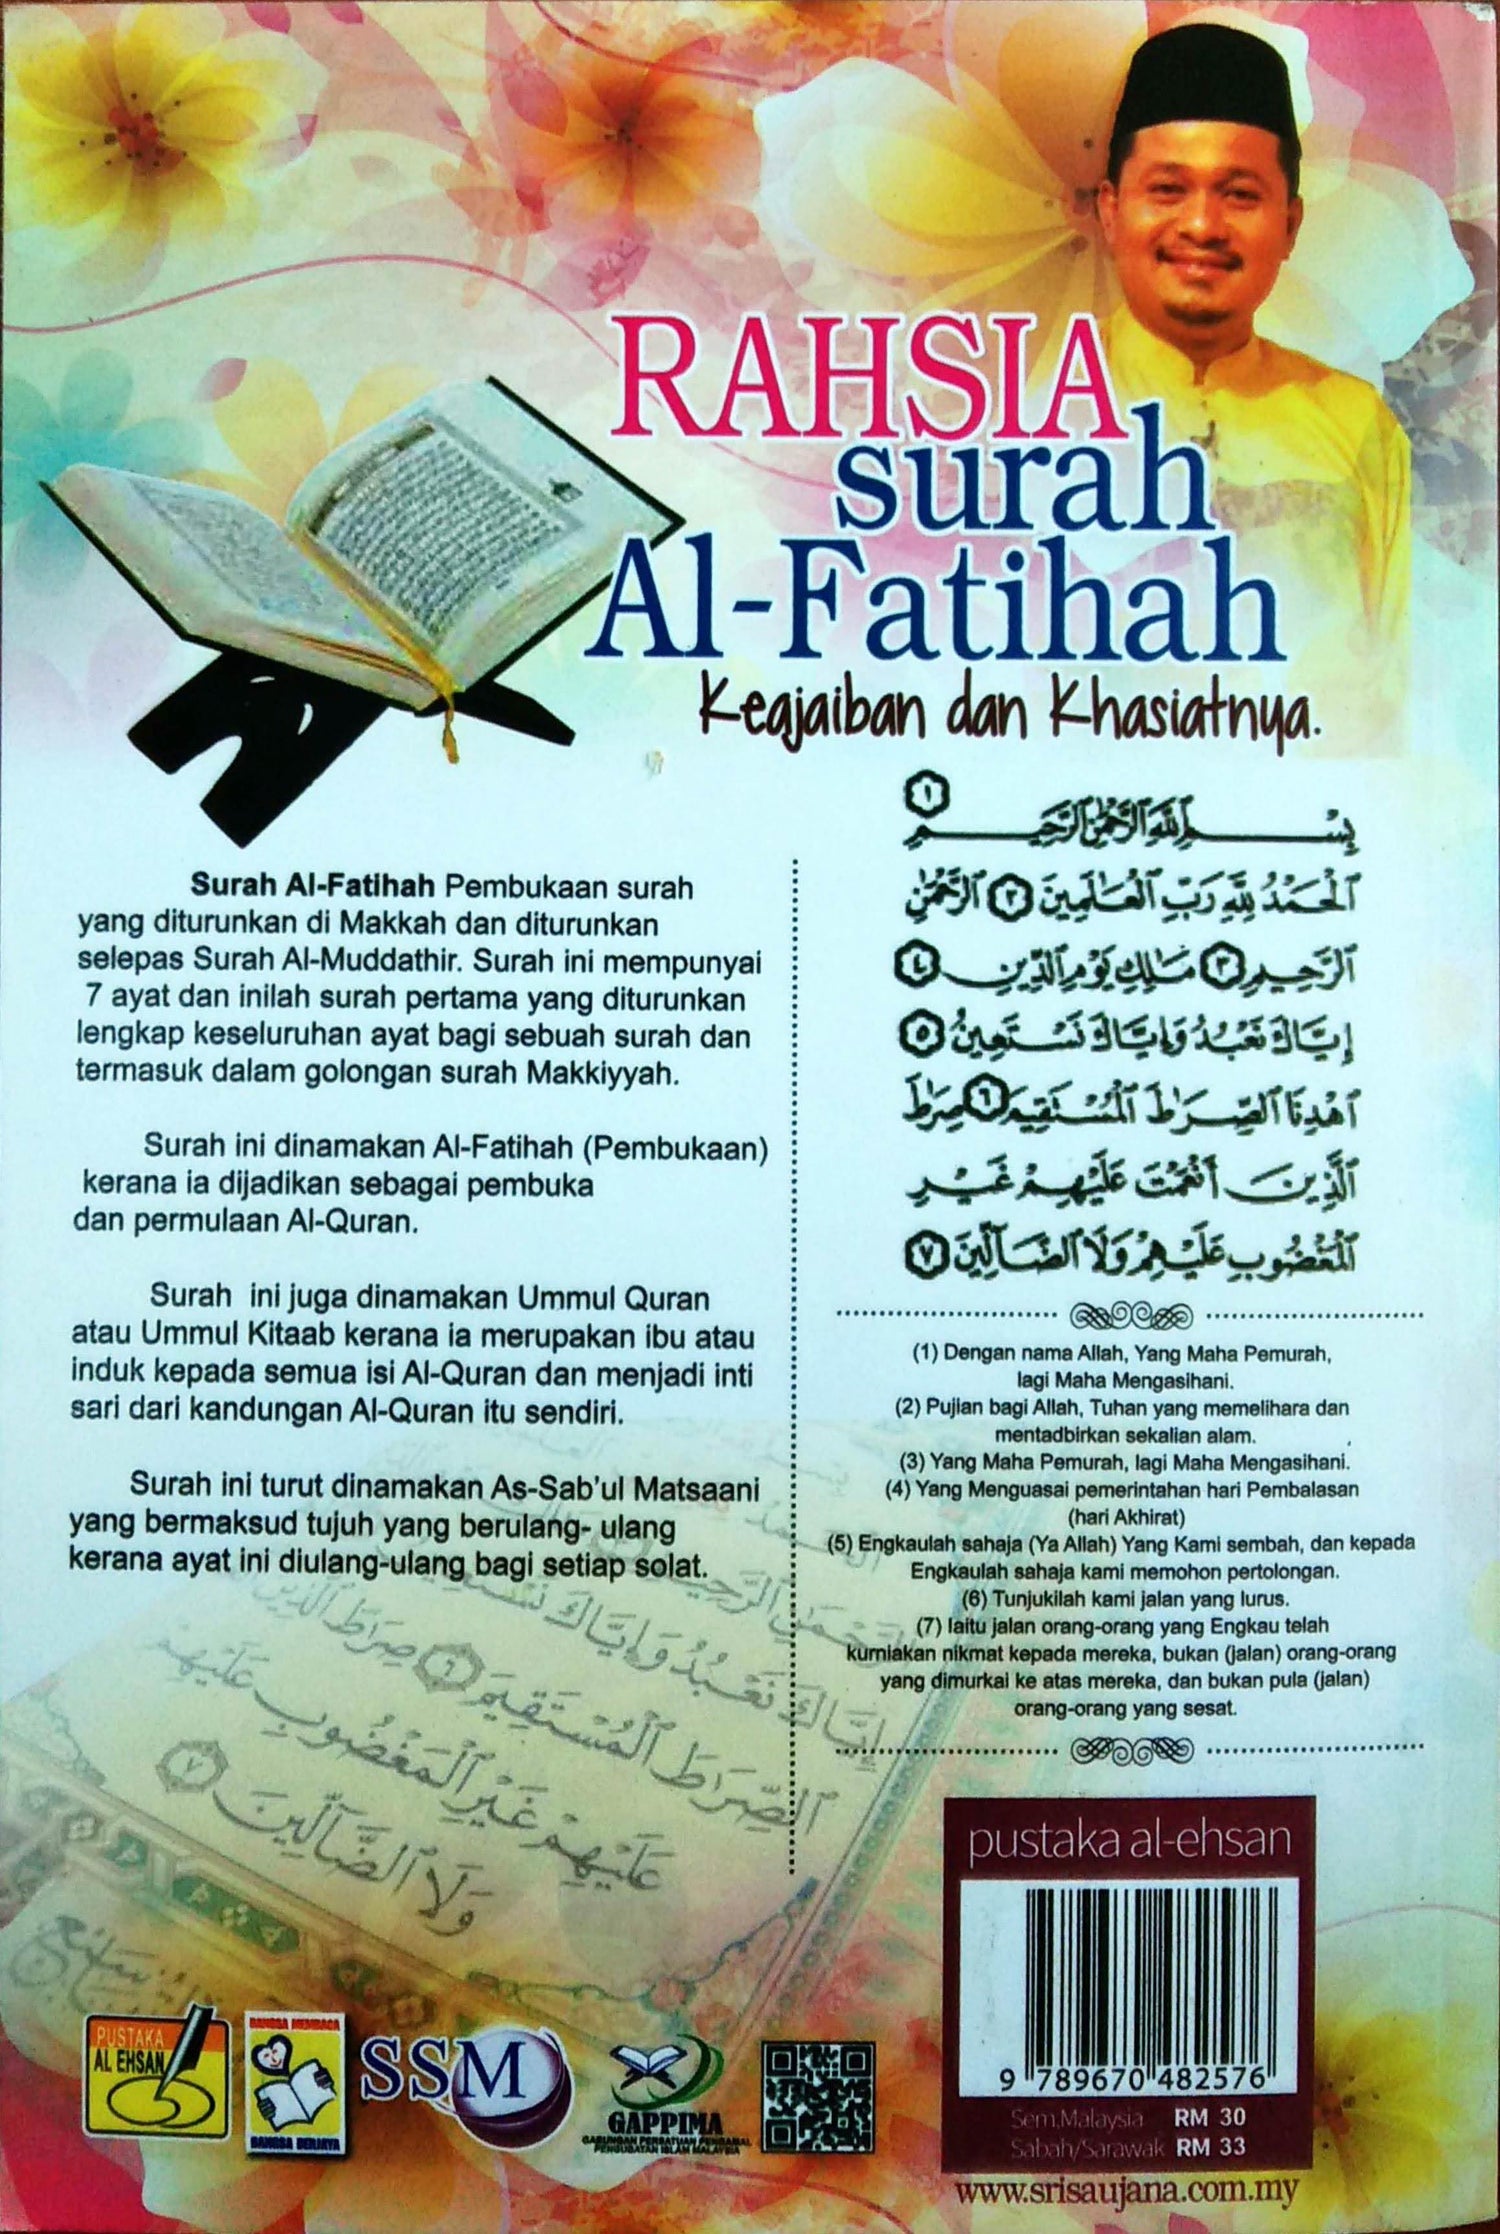 RAHSIA
surah
Al-Fatihah
Keajaiban dan Khasiatnya.
Surah Al-Fatihah Pembukaan surah
yang diturunkan di Makkah dan diturunkan
selepas Surah Al-Muddathir. Surah ini mempunyai
7 ayat dan inilah surah pertama yang diturunkan
lengkap keseluruhan ayat bagi sebuah surah dan
termasuk dalam golongan surah Makkiyyah.
Surah ini dinamakan Al-Fatihah (Pembukaan)
kerana ia dijadikan sebagai pembuka
dan permulaan Al-Quran.
Surah ini juga dinamakan Ummul Quran
atau Ummul Kitaab kerana ia merupakan ibu atau
induk kepada semua isi Al-Quran dan menjadi inti
sari dari kandungan Al-Quran itu sendiri.
Surah ini turut dinamakan As-Sab'ul Matsaani
yang bermaksud tujuh yang berulang- ulang
kerana ayat ini diulang-ulang bagi setiap solat.
بِسْمِ ٱللَّهِ ٱلرَّحْمَٰنِ ٱلرَّحِيمِ ١
ٱلْحَمْدُ لِلَّهِ رَبِّ ٱلْعَٰلَمِينَ ٢ ٱلرَّحْمَٰنِ
ٱلرَّحِيمِ ٣ مَٰلِكِ يَوْمِ ٱلدِّينِ ٤
إِيَّاكَ نَعْبُدُ وَإِيَّاكَ نَسْتَعِينُ ٥
ٱهْدِنَا ٱلصِّرَٰطَ ٱلْمُسْتَقِيمَ ٦ صِرَٰطَ
ٱلَّذِينَ أَنْعَمْتَ عَلَيْهِمْ غَيْرِ
ٱلْمَغْضُوبِ عَلَيْهِمْ وَلَا ٱلضَّآلِّينَ ٧
(1) Dengan nama Allah, Yang Maha Pemurah,
lagi Maha Mengasihani.
(2) Pujian bagi Allah, Tuhan yang memelihara dan
mentadbirkan sekalian alam.
(3) Yang Maha Pemurah, lagi Maha Mengasihani.
(4) Yang Menguasai pemerintahan hari Pembalasan
(hari Akhirat)
(5) Engkaulah sahaja (Ya Allah) Yang Kami sembah, dan kepada
Engkaulah sahaja kami memohon pertolongan.
(6) Tunjukilah kami jalan yang lurus.
(7) Iaitu jalan orang-orang yang Engkau telah
kurniakan nikmat kepada mereka, bukan (jalan) orang-orang
yang dimurkai ke atas mereka, dan bukan pula (jalan)
orang-orang yang sesat.
إِيَّاكَ نَعْبُدُ وَإِيَّاكَ
ٱلصِّرَٰطَ ٱلْمُسْتَقِيمَ ٦ صِرَاطَ ٱلَّذِينَ
عَلَيْهِمْ غَيْرِ ٱلْمَغْضُوبِ عَلَيْهِمْ
وَلَا ٱلضَّآلِّينَ ٧
PUSTAKA
AL EHSAN
BANGSA MEMBACA
BANGSA BERJAYA
SSM
GAPPIMA
GABUNGAN PERSATUAN PENGAMAL
PENGUBATAN ISLAM MALAYSIA
pustaka al-ehsan
9 789670 482576
Sem.Malaysia RM 30
Sabah/Sarawak RM 33
www.srisaujana.com.my